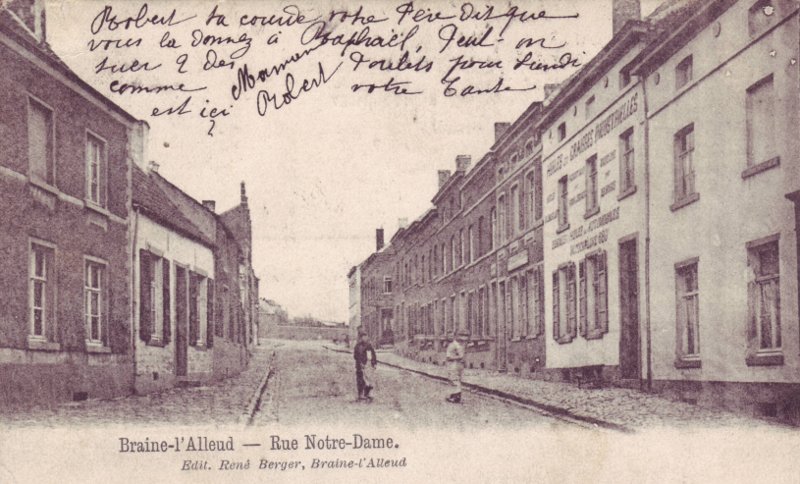 Robert ta courde votre Père dit que
vous la donnez à Raphaël, Peut-on
tuer 2 des Poulets pour Lundi
comme Maman votre tante
est ici Robert
?
HUILES ET GRAISSES INDUSTRIELLES
HUILE AUTOMOBILES
Braine-l'Alleud — Rue Notre-Dame.
Edit. René Berger, Braine-l'Alleud